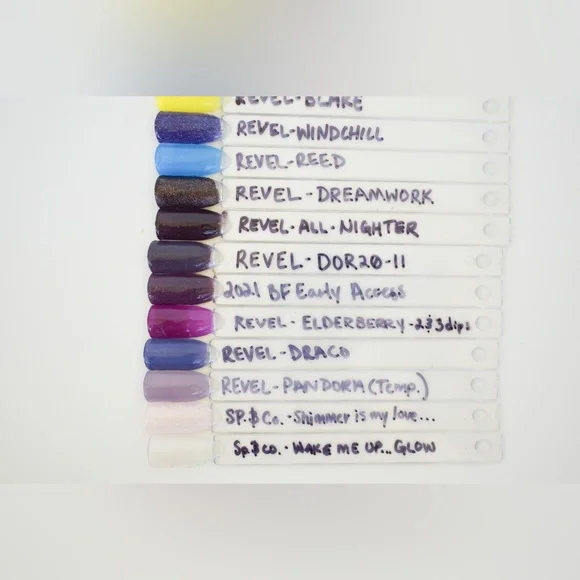 REVEL-BLAKE
REVEL-WINDCHILL
REVEL-REED
REVEL-DREAMWORK
REVEL-ALL-NIGHTER
REVEL-DOR20-11
2021 BF Early Access
REVEL-ELDERBERRY-2&3dips
REVEL-DRACO
REVEL-PANDORA(Temp.)
SP.&Co.-Shimmer is my love...
Sp.&co.-WAKE ME UP...GLOW